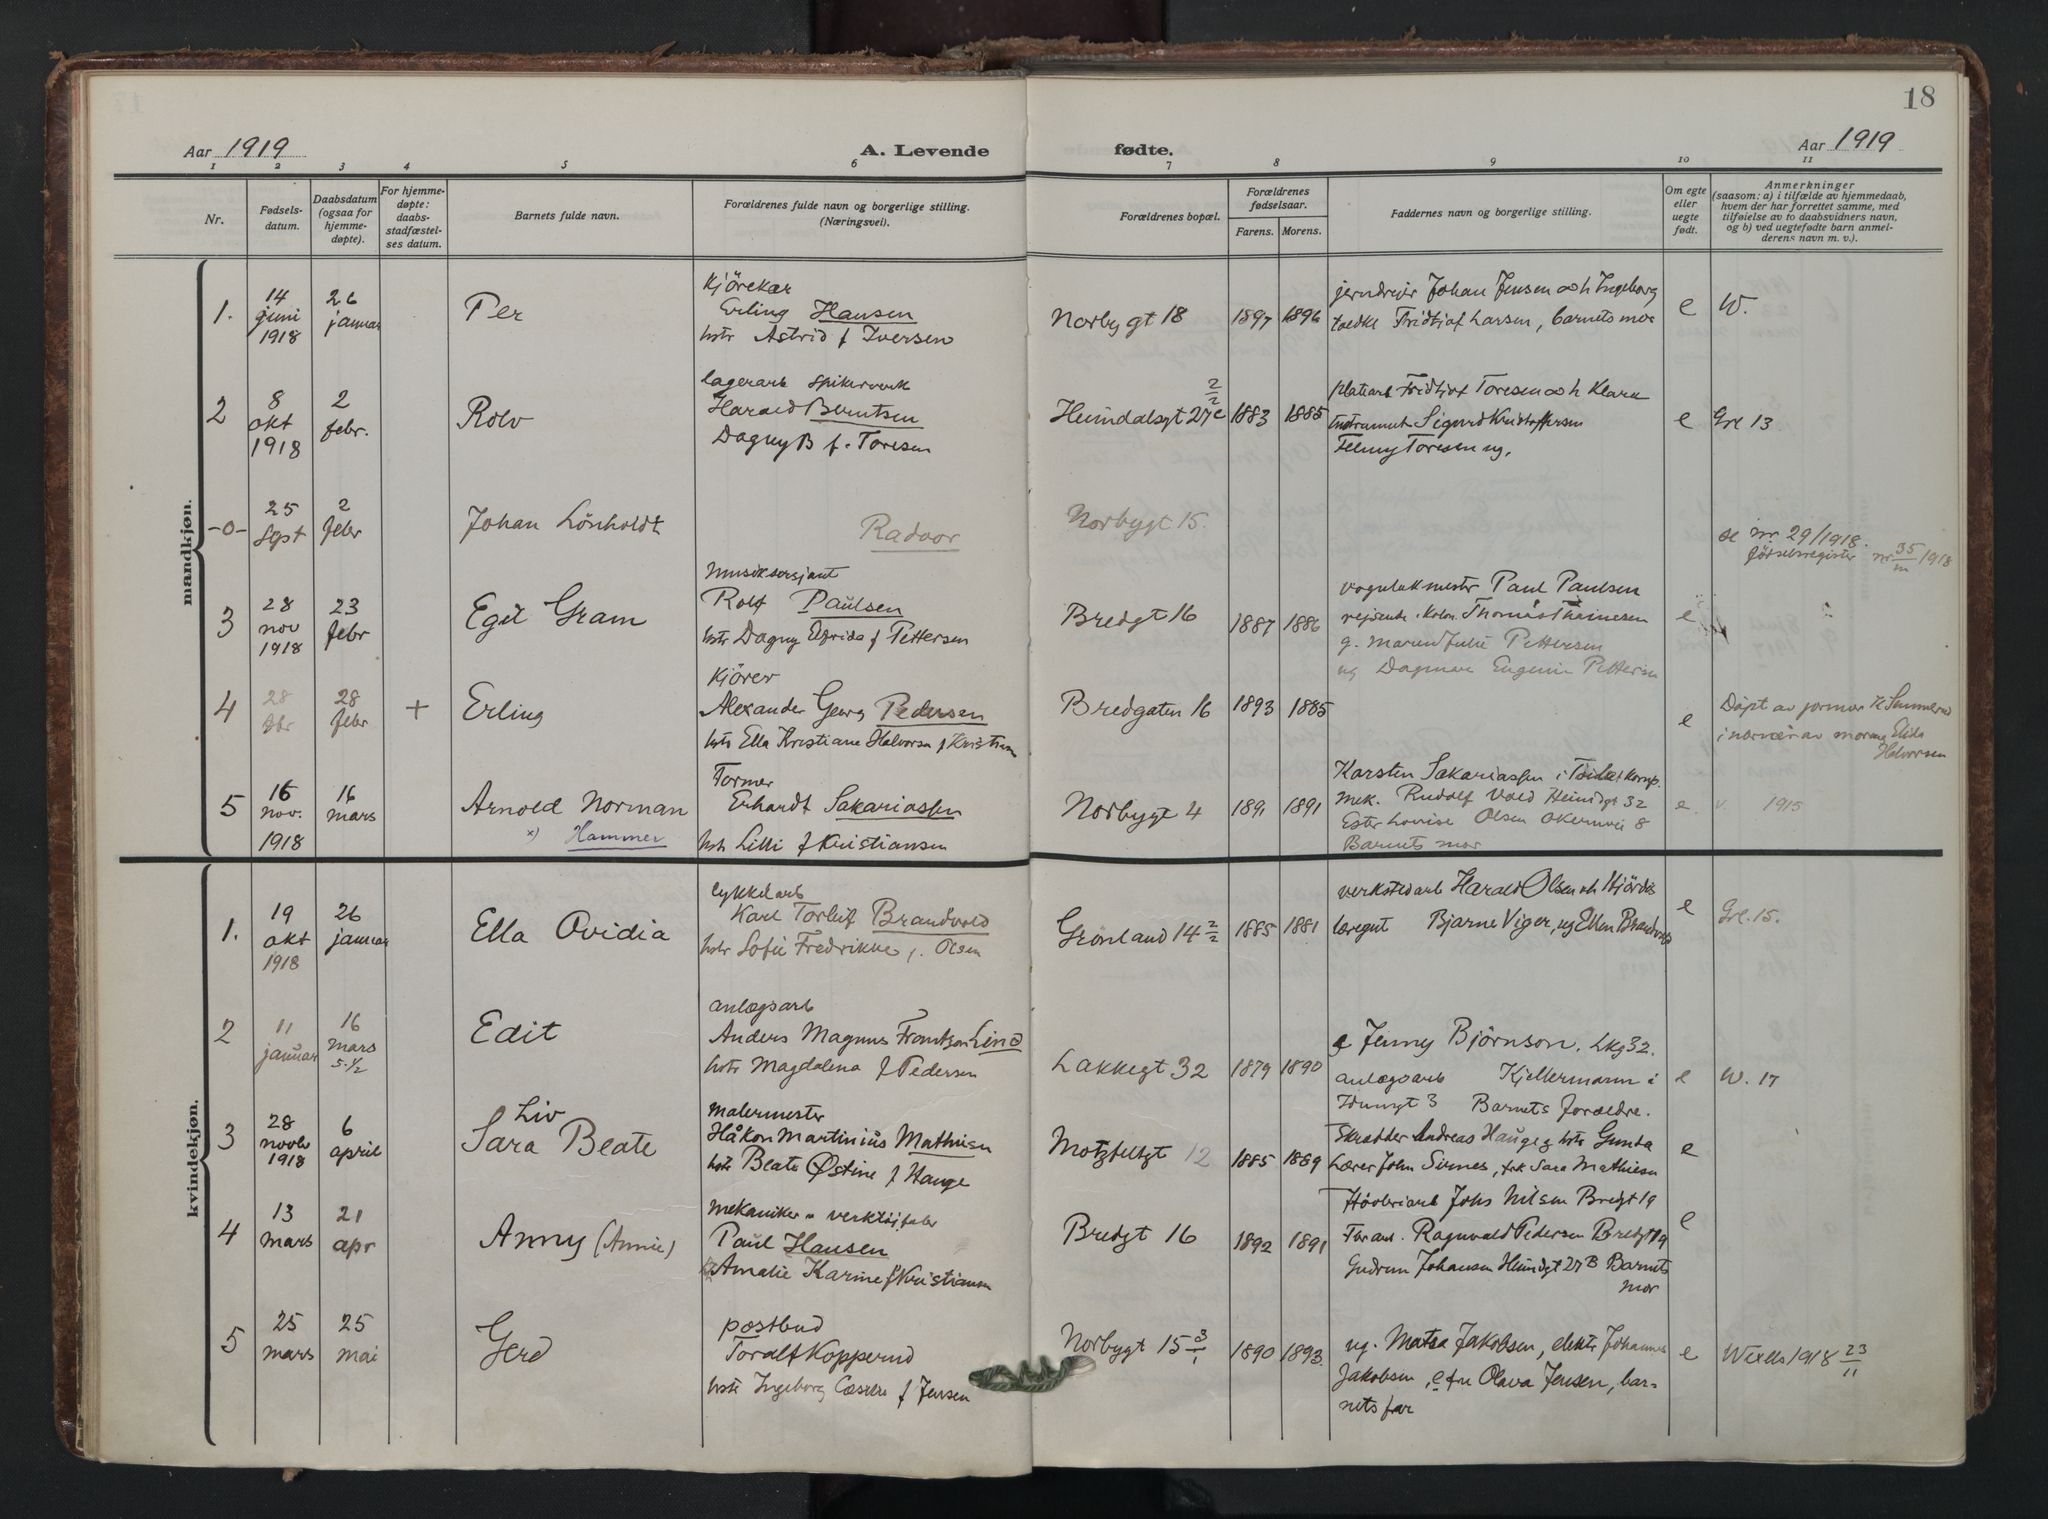 18
Aar 1919
A. Levende
fødte.
Aar 1919
1 2 3 4 5 6 7 8 9 10 11
Nr.
Fødsels-
datum.
Daabsdatum
(ogsaa for
hjemme-
døpte).
For hjemme-
døpte:
daabs-
stadfæstel-
ses datum.
Barnets fulde navn.
Forældrenes fulde navn og borgerlige stilling.
(Næringsvei).
Forældrenes bopæl.
Forældrenes
fødselsaar.
Farens. Morens.
Faddernes navn og borgerlige stilling.
Om egte
eller
uegte
født.
Anmerkninger
(saasom: a) i tilfælde av hjemmedaab,
hvem der har forrettet samme, med
tilføielse av to daabsvidners navn,
og b) ved uegtefødte barn anmel-
derens navn m. v.).
mandkjøn.
1.
14
juni
1918
26
januar
Per
Kjörekar
Erling Hansen
hstr Astrid f Iversen
Norbygt 18
1897 1896
Johan Jensen og h Ingeborg
Fridtjof Larsen, barnets mor
e
W.
2
8
okt
1918
2
febr.
Rolv
lagerarb spikerverk
Harald Berntsen
Dagny B f. Toresen
Heimdalsgt 27c 2/2
1883 1885
Fridtjof Toresen og h Klara
Sigurd Kristoffersen
Toresen ug.
e
Grl 13
-o-
25
Sept
2
febr
Johan Lönholdt
Radoor
Norbygt 15.
se nr 29/1918.
fødselsregister nr 35/m 1918
3
28
nov
1918
23
febr
Egil Gram
Musiksersjant
Rolf Paulsen
hstr Dagny Elfrida f Pettersen
Bredgt 16
1887 1886
Paul Paulsen
Thomas
g. Maren Julie Pettersen
ug Dagmar Eugenie Pettersen
e
4
28
fbr
28
febr
+
Erling
Kjörer
Alexander Georg Pedersen
hstr Ella Kristiane Halvorsen f Kristiansen
Bredgaten 16
1893 1885
e
Döpt av jormor K
i nærvær av
Halvorsen
5
16
nov.
1918
16
mars
Arnold Norman
x) Hammer
Former
Erhardt Sakariassen
hstr Lilli f Kristiansen
Norbygt 4
1891 1891
Karsten Sakariassen i
Mek. Rudolf Vold Heimdgt 32
Ester Lovise Olsen Økernvei 8
Barnets mor
e.
v. 1915
kvindekjøn.
1.
19
okt
1918
26
januar
Ella Ovidia
lykkelarb
Karl Torleif Brandvold
hstr Sofie Fredrikke f. Olsen
Grönland 14 2/2
1885 1881
verkstedarb Harald Olsen og Hjördis
Bjarne Viger, ug Ellen Brandvold
e
Grl. 15.
2
11
januar
16
mars
5.1/2
Edit
anlægsarb
Anders Magnus Frantsen Lind
hstr Magdalena f Pedersen
Lakkegt 32
1879 1890
e Jenny Björnson. Lkg 32.
anlægsarb Kjellermann i
Idunsgt 3 Barnets forældre.
e
W. 17
3
28
novbr
1918
6
april
Liv
Sara Beate
Malermester
Håkon Martinius Mathisen
hstr Beate Østine f Hauge
Motzfeltgt 12
1885 1889
Skrædder Andreas Hauge g hstr Gunda
Lærer John Sirnes, frk Sara Mathisen
e
4
13
mars
21
apr
Anny (Annie)
Mekaniker verktöifabr
Paul Hansen
Amalie Karine f Kristiansen
Bredgt 16
1892 1891
Hövleriarb Johs Nilsen Bredgt 19
Ragnvald Pedersen Bredgt 19
Gudrun Johansen Heimdgt 27B Barnets
mor
e
5
25
mars
25
mai
Gerd
postbud
Toralf Kopperud
hstr Ingeborg f Jensen
Norbygt 15 3/1
1890 1893.
ug. Matea Jakobsen, elektr Johannes
Jakobsen, e fru Olava Jensen, bar-
nets far
e
Wexels 1918 23/11